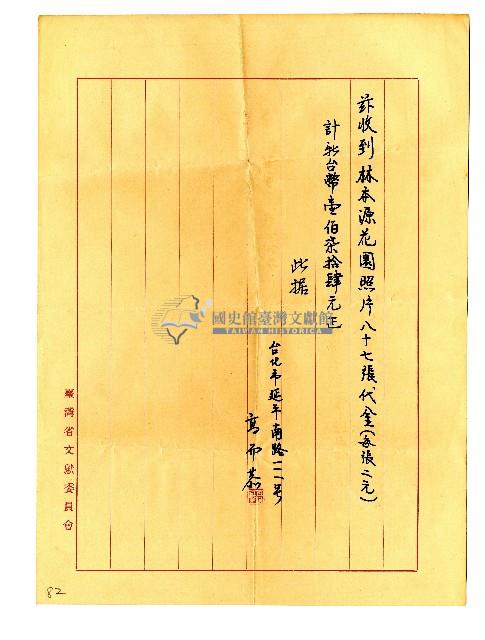 茲收到林本源花園照片八十七張代金(每張二元)
計新台幣壹佰柒拾肆元正
此据
台北市延平南路一一八号
高而恭
臺灣省文獻委員會
國史館臺灣文獻館
TAIWAN HISTORICA
82